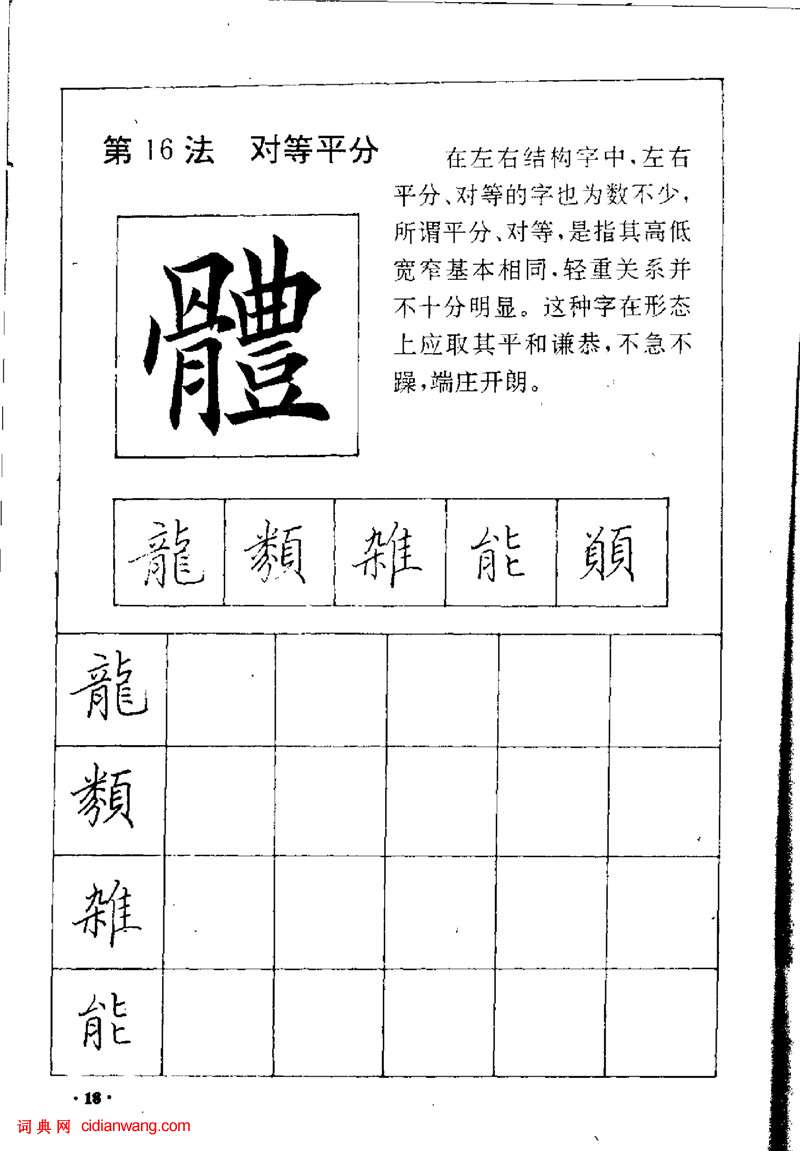 第16法 对等平分
在左右结构字中,左右
平分、对等的字也为数不少,
所谓平分、对等,是指其高低
宽窄基本相同,轻重关系并
不十分明显。这种字在形态
上应取其平和谦恭,不急不
躁,端庄开朗。
體
龍 類 雑 能
龍
類
雑
能
·18·
词典网 cidianwang.com